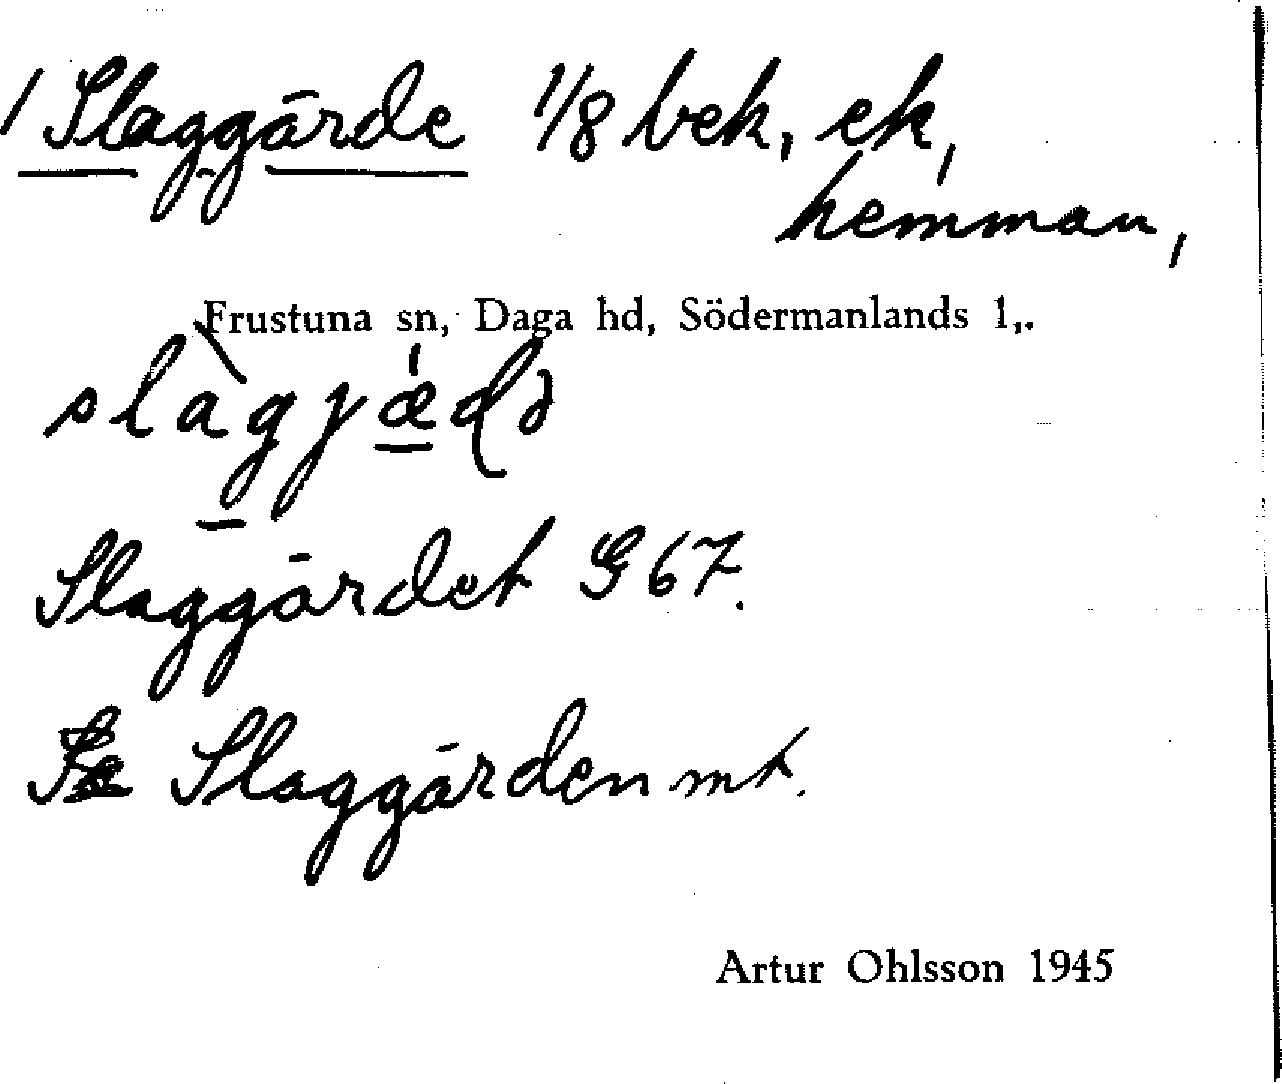 1 Slaggärde 1/8 bek, ek,
hemman,
Frustuna sn, Daga hd, Södermanlands l,.
Slaggärdet G 67.
Slaggärden mt.
Artur Ohlsson 1945